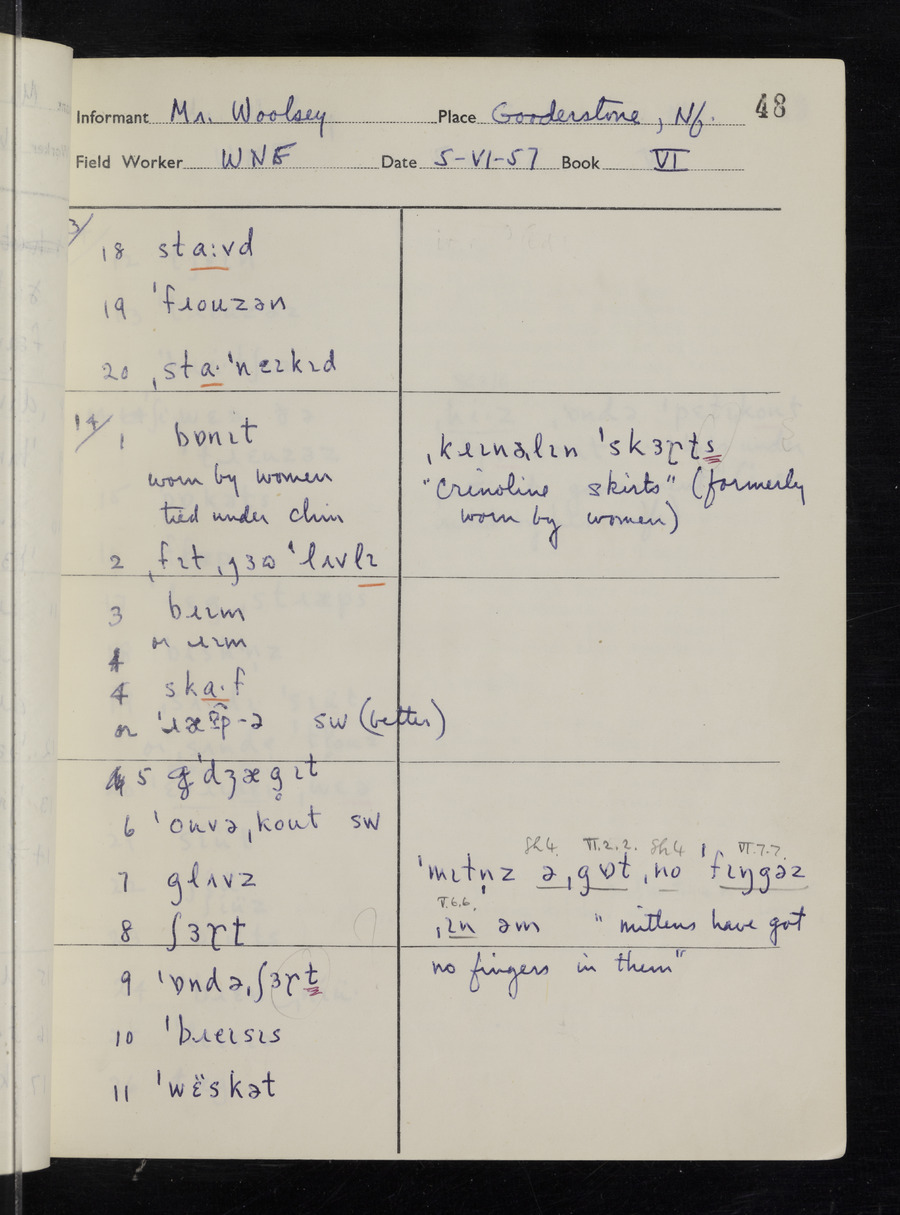 48
Informant Mr. Woolsey Place Gooderstone, Nf.
Field Worker WNE Date 5-VI-57 Book VI
3/
18 sta:vd
19 ˈfɹouzən
20 ˌsta·ˈneɪkɪd
14/
1 bɒnɪt
worn by women
tied under chin
2 ˌfɪt ˌgɜə ˈlʌvlɪ
3 bɹɪm
or ɹɪm
4 ska·f
or sw (better)
5 ˈdʒægɪt
6 ˈouvəˌkout sw
7 glʌvz
8 ʃɜɽt
9 ˈɒndəˌʃɜɽt
10 ˈbɹeɪsɪs
11 ˈwɛ̈skət
ˈskɜɽts
"Crinoline skirts" (formerly
worn by women)
Sh4 VI.2.2. Sh4 VI.7.7.
ˈmɪtn̩z əˌgɒt ˌno ˈfɪŋgəz
V.6.6.
ˌɪn əm "mittens have got
no fingers in them"